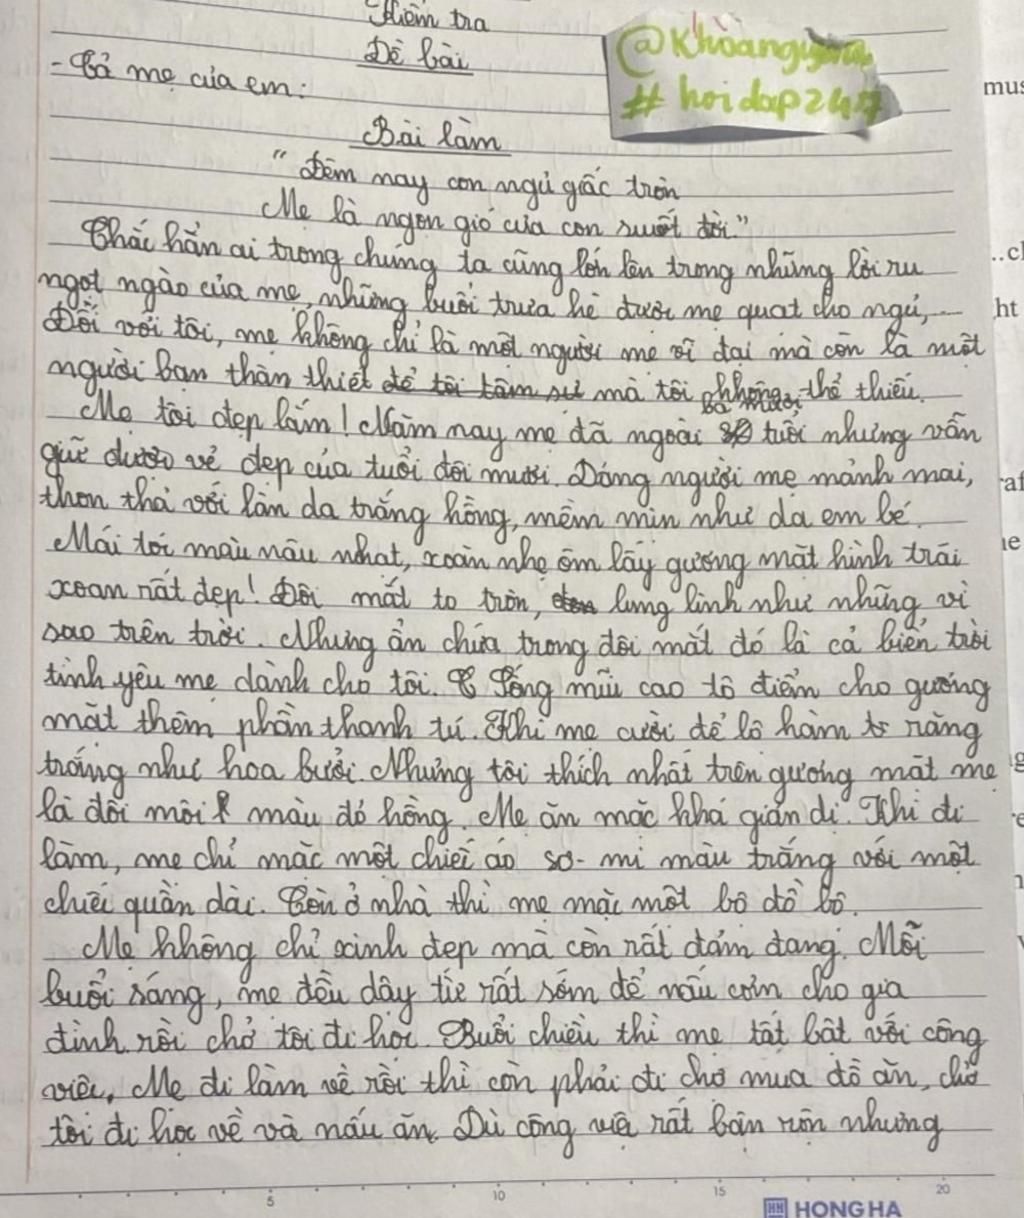 Kiểm tra
Đề bài
- Tả mẹ của em:
@Khoanguyen
# hoidap247
Bài làm
"Đêm nay con ngủ giấc tròn
Mẹ là ngọn gió của con suốt đời."
Chắc hẳn ai trong chúng ta cũng lớn lên trong những lời ru
ngọt ngào của mẹ, những buổi trưa hè được mẹ quạt cho ngủ,...
Đối với tôi, mẹ không chỉ là một người mẹ vĩ đại mà còn là một
người bạn thân thiết để tôi tâm sự mà tôi không thể thiếu.
Mẹ tôi đẹp lắm! Năm nay mẹ đã ngoài ba mươi tuổi nhưng vẫn
giữ được vẻ đẹp của tuổi đôi mươi. Dáng người mẹ mảnh mai,
thon thả với làn da trắng hồng, mềm mịn như da em bé.
Mái tóc màu nâu nhạt, xoăn nhẹ ôm lấy gương mặt hình trái
xoan rất đẹp! Đôi mắt to tròn, lung linh như những vì
sao trên trời. Nhưng ẩn chứa trong đôi mắt đó là cả biển trời
tình yêu mẹ dành cho tôi. Sống mũi cao tô điểm cho gương
mặt thêm phần thanh tú. Khi mẹ cười để lộ hàm răng
trắng như hoa bưởi. Nhưng tôi thích nhất trên gương mặt mẹ
là đôi môi màu đỏ hồng. Mẹ ăn mặc khá giản dị. Khi đi
làm, mẹ chỉ mặc một chiếc áo sơ-mi màu trắng với một
chiếc quần dài. Còn ở nhà thì mẹ mặc một bộ đồ bộ.
Mẹ không chỉ xinh đẹp mà còn rất đảm đang. Mỗi
buổi sáng, mẹ đều dậy từ rất sớm để nấu cơm cho gia
đình rồi chở tôi đi học. Buổi chiều thì mẹ tất bật với công
việc. Mẹ đi làm về rồi thì còn phải đi chợ mua đồ ăn, chở
tôi đi học về và nấu ăn. Dù công việc rất bận rộn nhưng
5 10 15 20
HONG HA